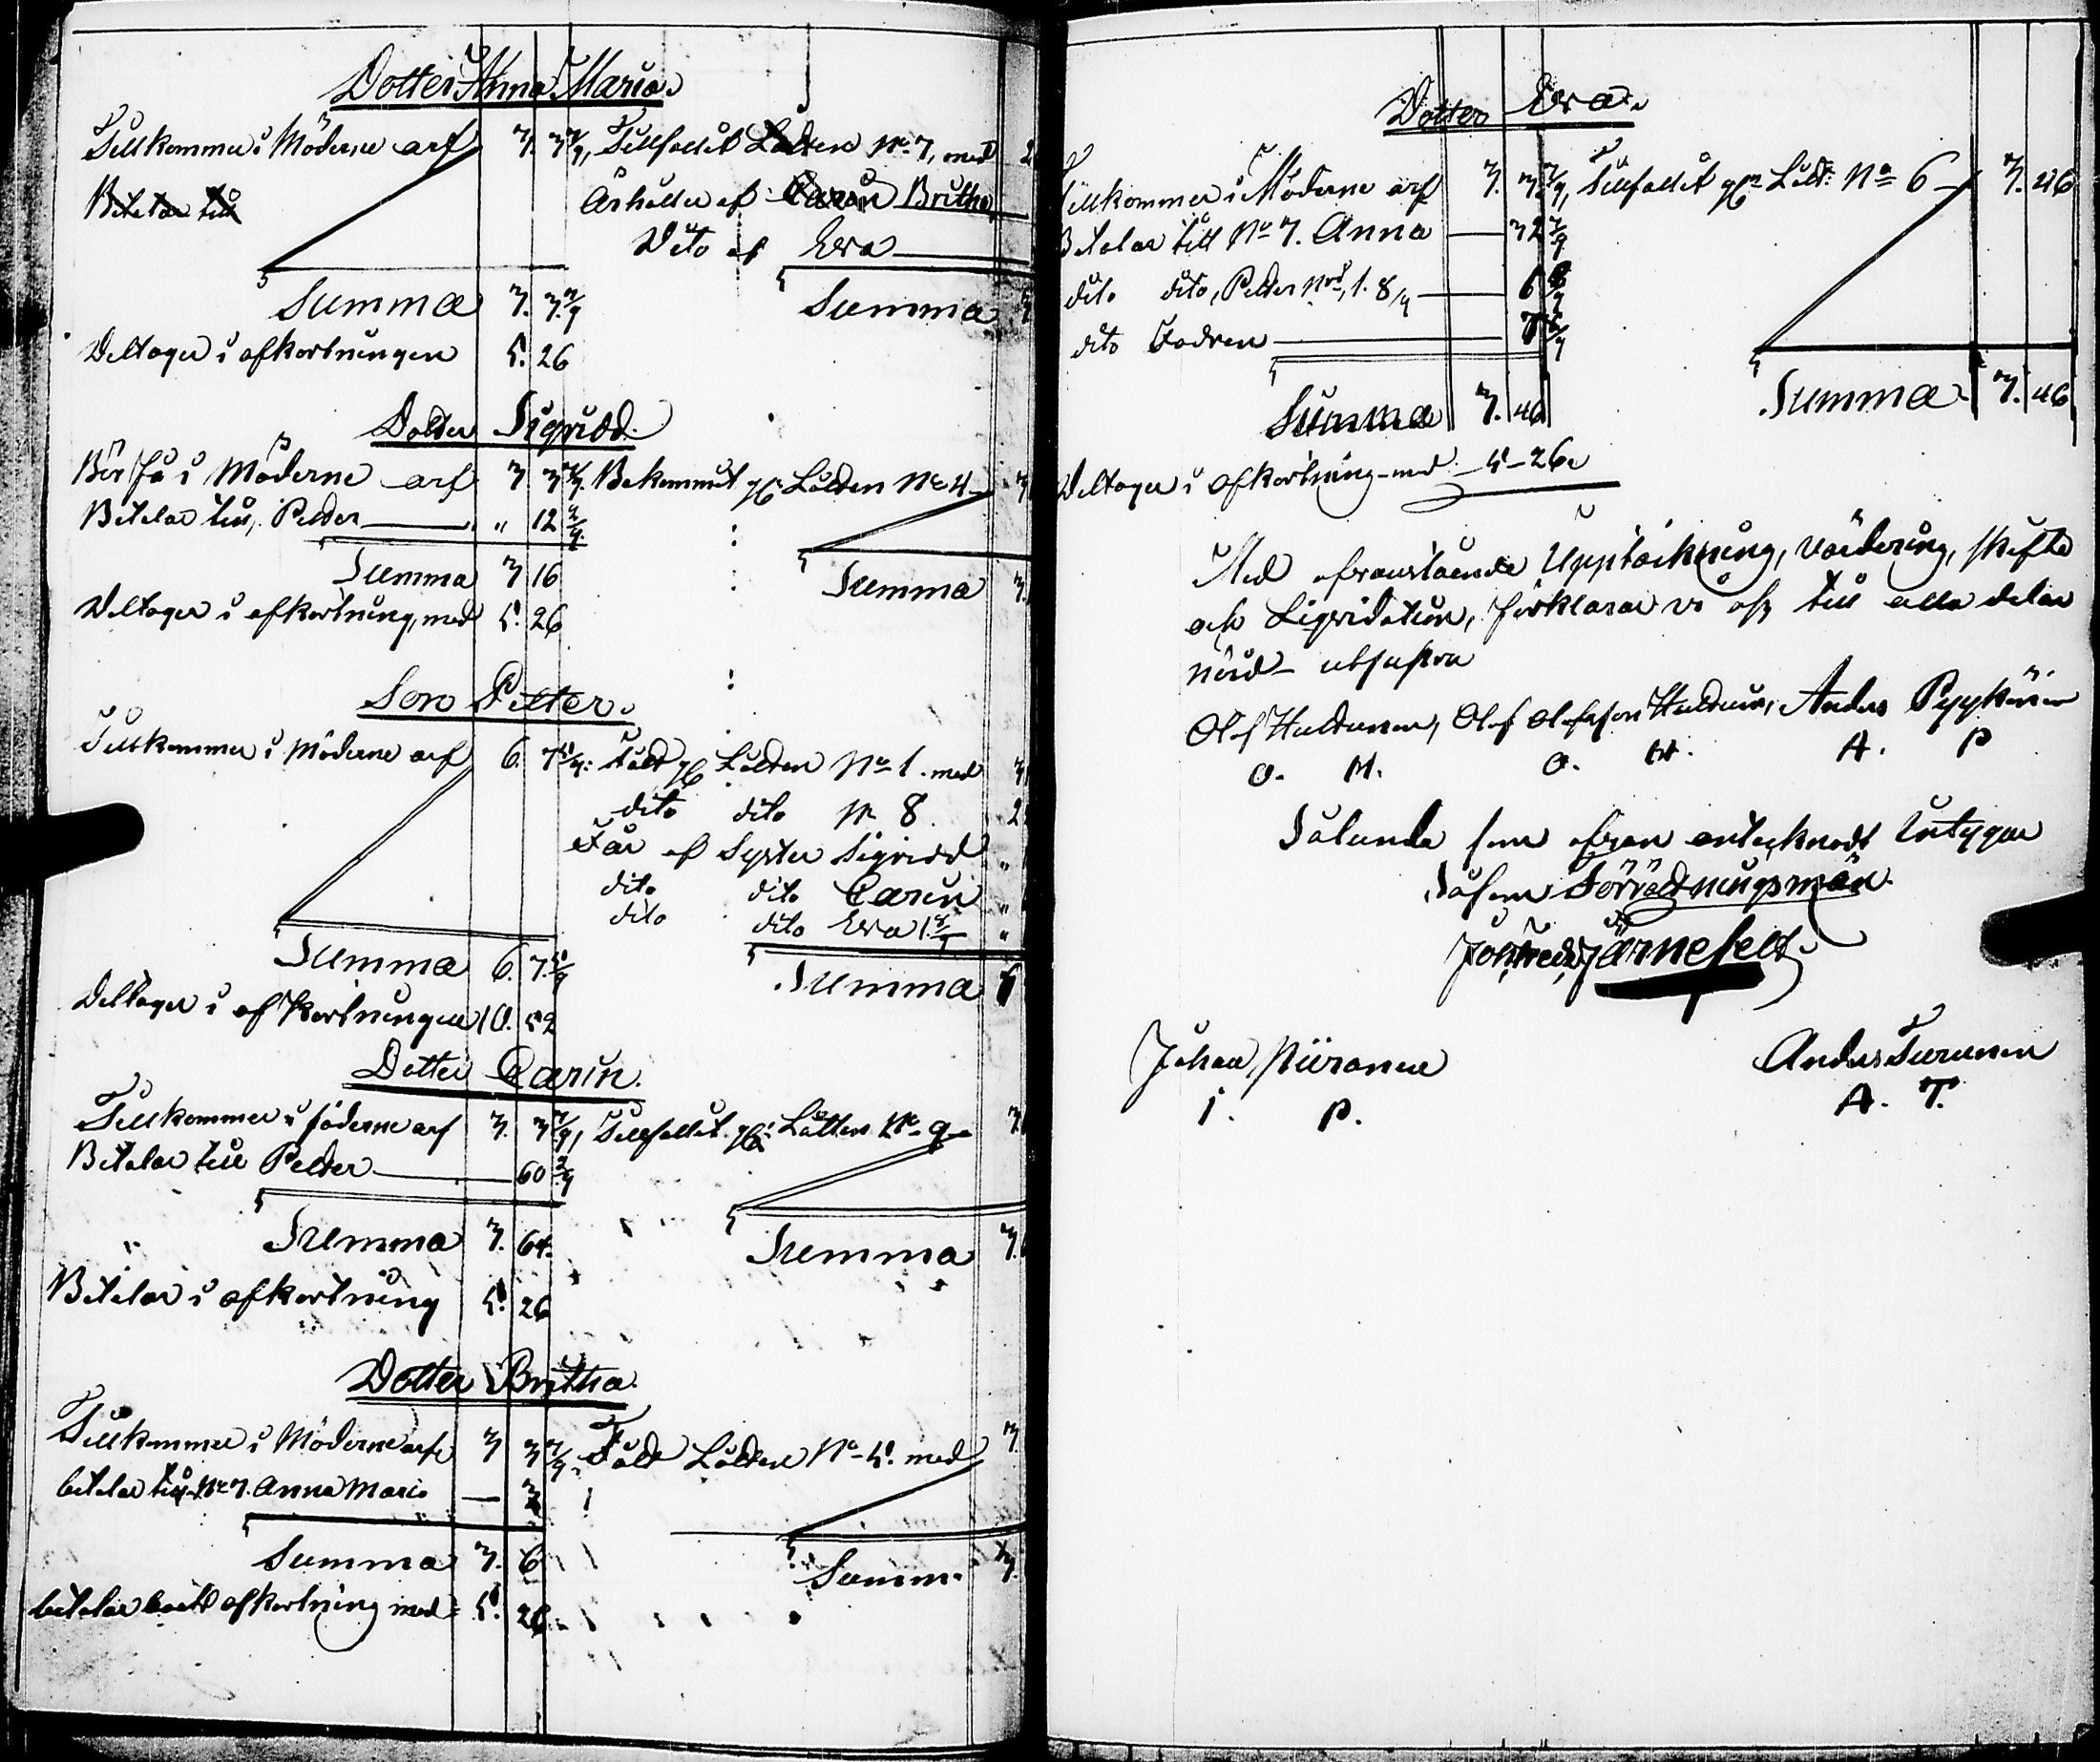 Dotter Anna Maria.
Tillkommer i Möderne arf 3. 3 7/9, Tillfallit Lotten No 7, med 2
Betalar till
Erhåller af Carin Britha
Dito af Eva
Summa 3. 3 7/9 Summa 3
Deltager i afkortningen 5. 26
Dotter Sigridd.
Bör få i Möderne arf 3 3 7/9. Bekommit gm Lotten No 4 3
Betalar till, Petter " 12 2/9
Summa 3 16 Summa 3.
Deltager i afkortning, med 5. 26
Son Petter.
Tillkommer i Möderne arf 6. 7 5/9: Född gm Lotten No 1. med 3
dito dito No 8. 2
Får af Syster Sigridd "
dito dito Carin "
dito dito Eva 1. "
Summa 6. 7 5/9 Summa 6
Deltager i afkortningen 10. 52
Dotter Carin.
Tillkommer i föderne arf 3. 3 7/9, Tillfallit gm Lotten No 9 3
Betalar till Petter 60 2/9
Summa 3. 64. Summa 3.
Betalar i afkortning 5. 26
Dotter Britha.
Tillkommer i Möderne arf 3 3 7/9. Född Lotten No 5. med 3
betalar till No 7. Anna Maria
Summa 3. 6 Summ. 3.
betalar afkortning med 5. 26
Dotter Eva.
Tillkommer i Möderne arf 3. 3 7/9, Tillfallit gm Lott: No 6 3. 46
Betalar till No 7. Anna 32 7/9
dito dito, Petter No 1. 8/9 6
dito Fadren
Summa 3. 46 Summa 3. 46
Deltager i afkortning med 5-26.
Med ofvanstående Uppteckning, värdering, skifte
och Liqvidation, förklara vi oss till alla delar
nöjd
Olof Huldunen, Olof Olofsson Huldunen, Anders Pyykönen
O. H. O. H. A. P
Sålunda som ofvan antecknadt Intygar
Såsom Förrättningsmän
Joh. Fred. Järnefelt
Johan Piironen Anders Turunen
I. P. A. T.